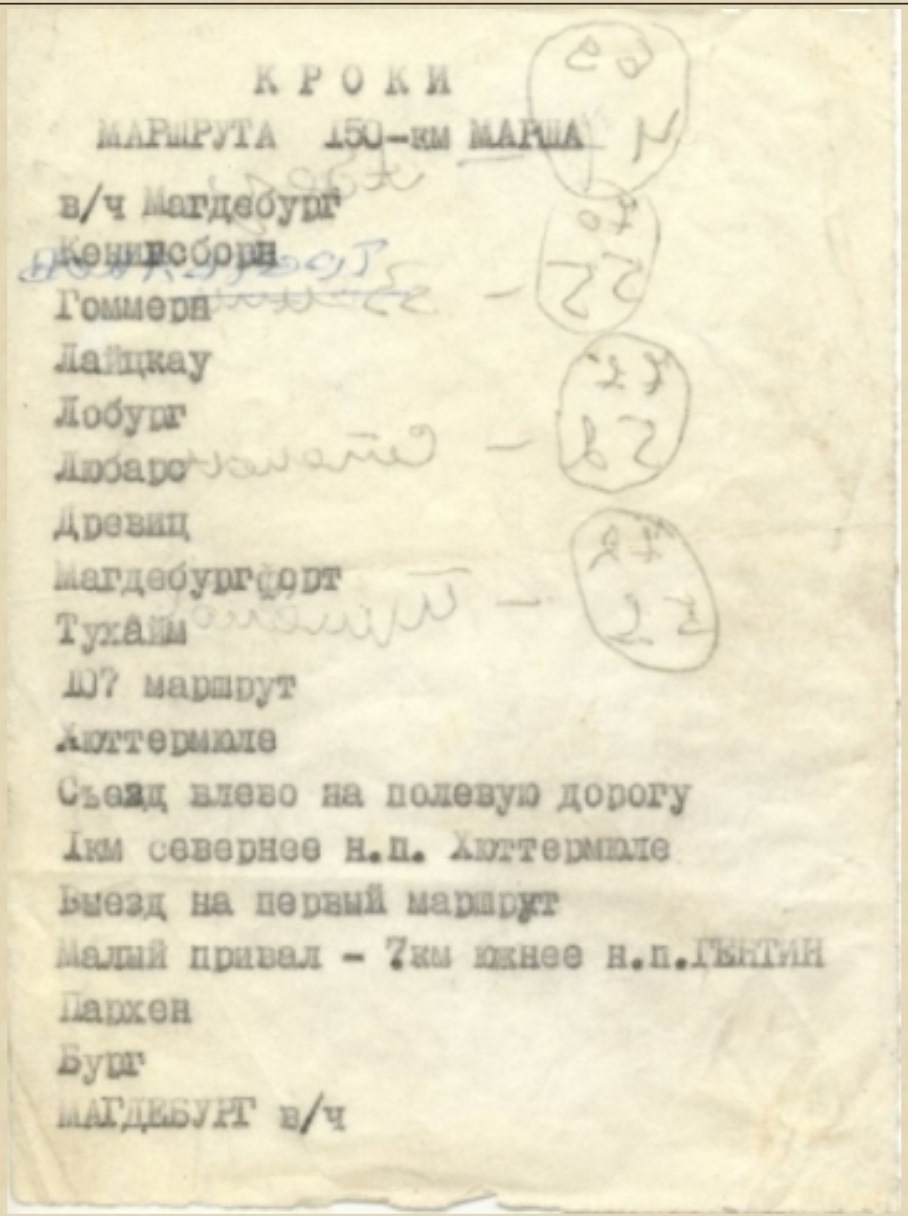 КРОКИ
МАРШРУТА 150-км МАРША
в/ч Магдебург
Кенигсборн
Гоммерн
Лайцкау
Лобург
Любарс
Древиц
Магдебургфорт
Тухайм
107 маршрут
Хюттермюле
Съезд влево на полевую дорогу
1км севернее н.п. Хюттермюле
Выезд на первый маршрут
Малый привал - 7км южнее н.п.ГЕНТИН
Пархен
Бург
МАГДЕБУРГ в/ч